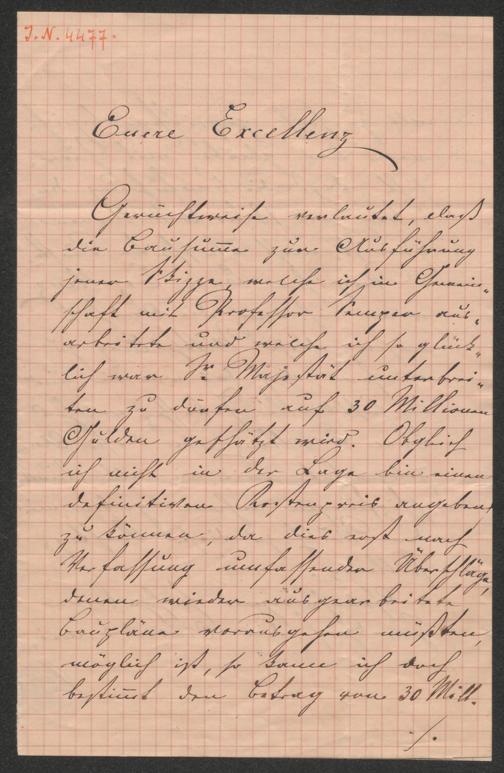 J.N. 4477.
Euere Excellenz
Gerüchtweise verlautet, daß
die Bausumme zur Ausführung
jener Skizze, welche ich in Gemein-
schaft mit Professor Semper aus-
arbeitete und welche ich so glück-
lich war Sr. Majestät unterbrei-
ten zu dürfen auf 30 Millionen
Gulden geschätzt wird. Obgleich
ich nicht in der Lage bin einen
definitiven Kostenpreis angeben
zu können, da dies erst nach
Verfassung umfassender Überschläge,
denen wieder ausgearbeitete
Baupläne vorausgehen müßten,
möglich ist, so kann ich doch
bestimmt den Betrag von 30 Mill.
./.